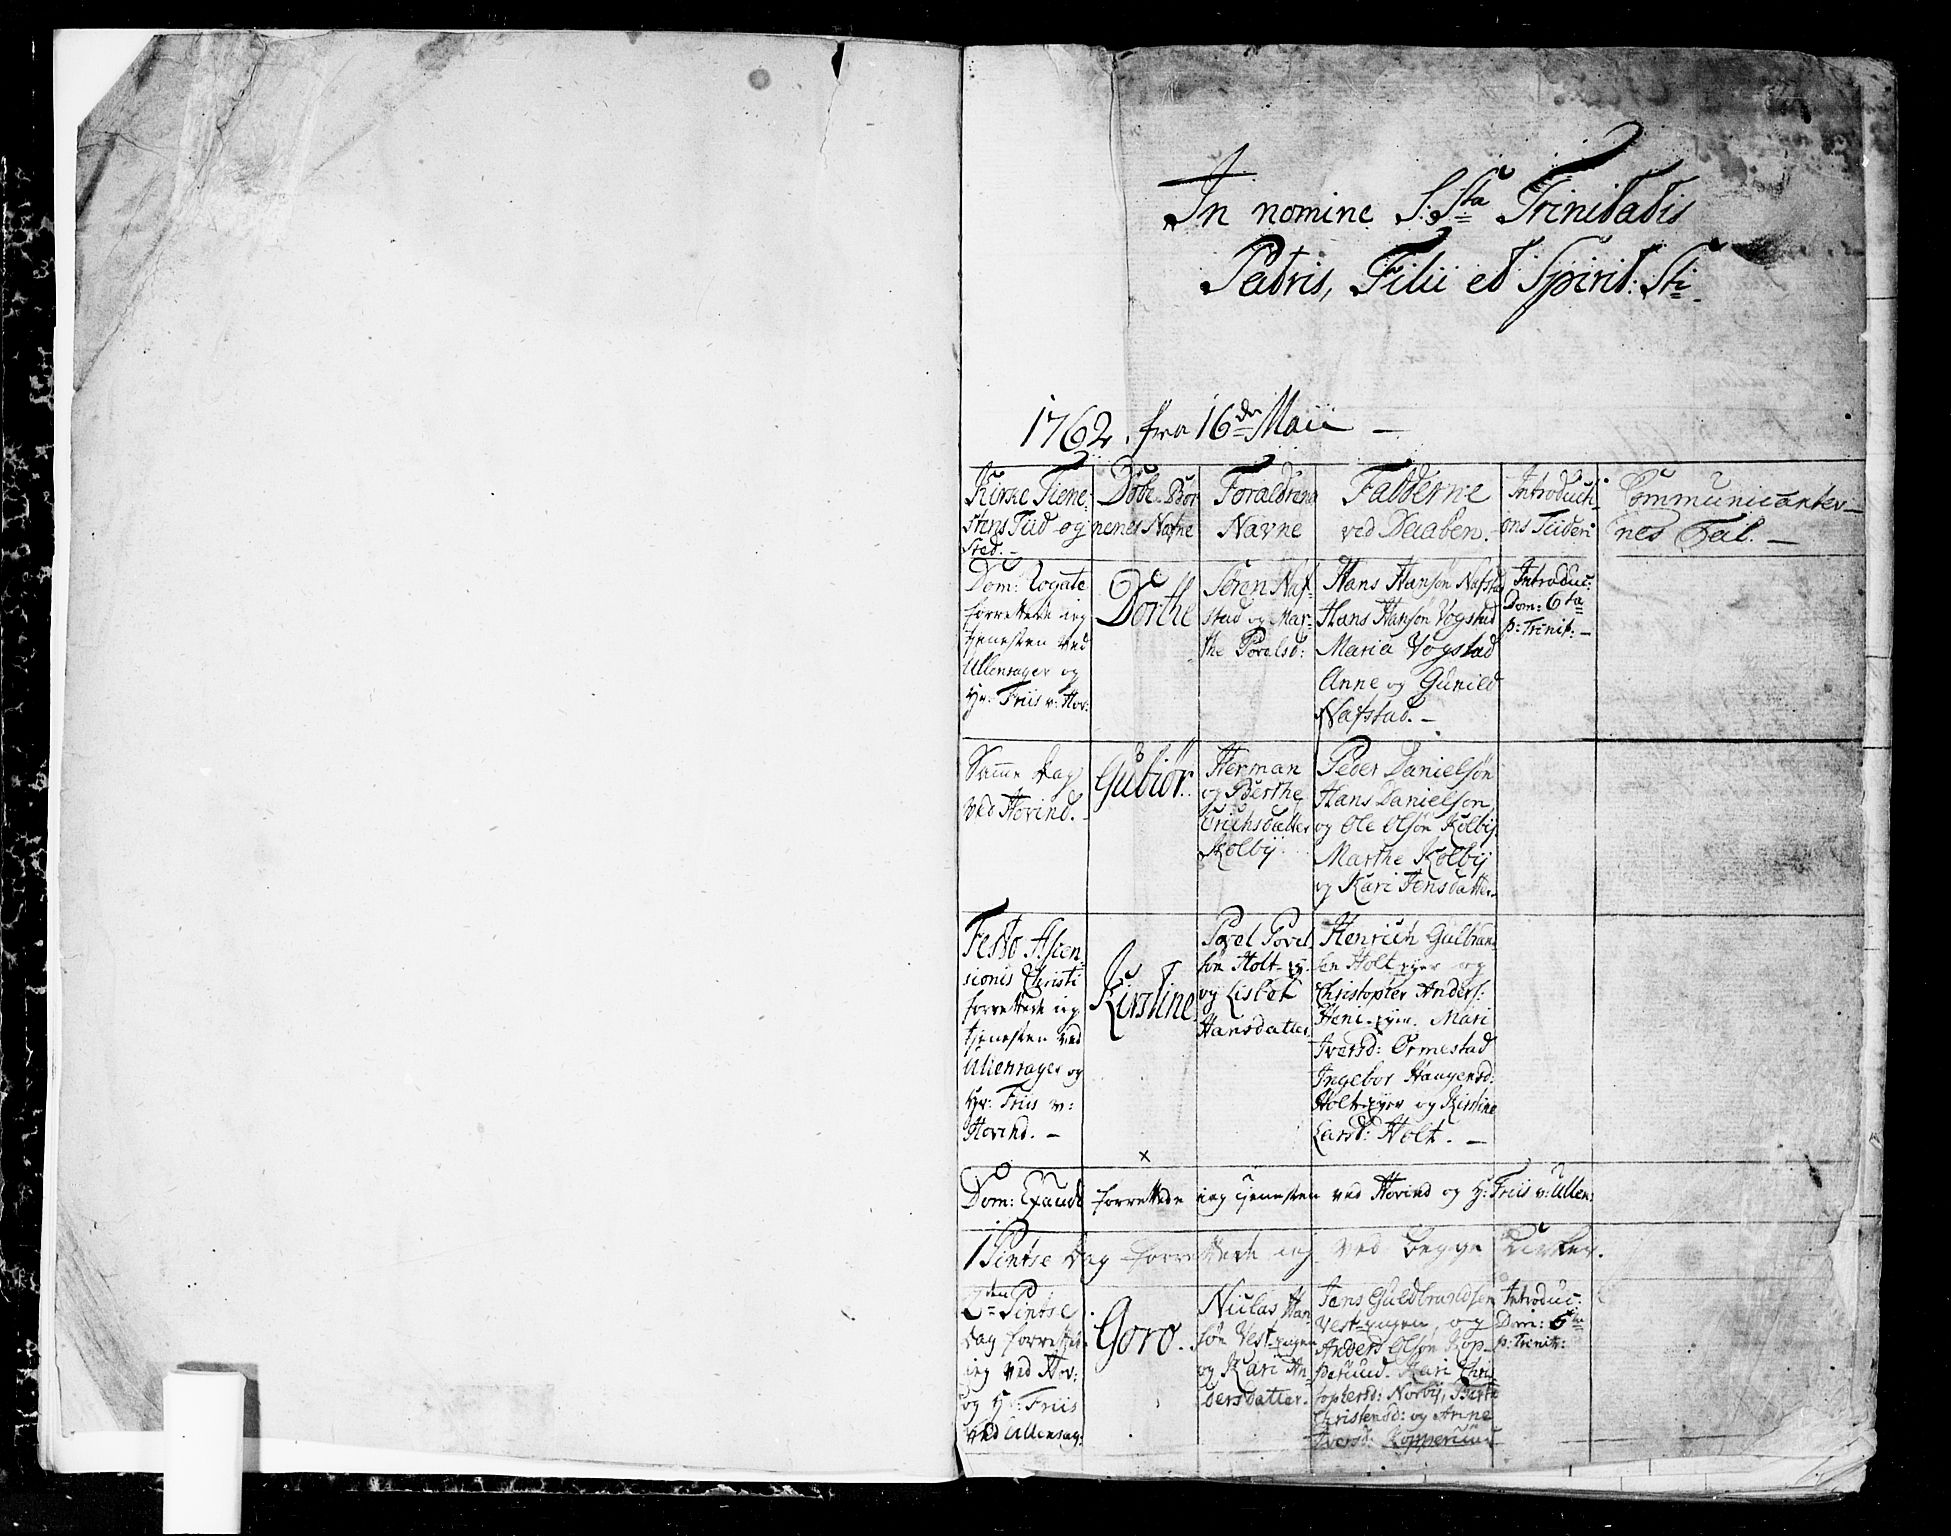 In nomine S: Sta Trinitatis
Patris, Filii et Spirit: Sti
1762. fra 16de Maii —
Kirke Tiene-
stens Tiid og
Sted. -
Døbe-Bør
nenes Nafne
Forældrene
Navne
Fadderne
ved Daaben.
Introducti
ons Tiiden
Communicanter-
nes Tal. —
Dom: Rogate
forrettede ieg
tjenesten ved
Ullensager og
Hr: Friis v: Hov:
Dorthe
Søren Naf-
stad og Mar-
the Povelsd:
Hans Hansøn Nafstad
Hans Hansøn Vogstad
Maria Vogstad
Anne og Gunild
Nafstad. -
Introduc:
Dom: 6ta
p: Trinit: -
Samme Dag
ved Hovind. -
Gubiør.
Herman
og Berthe
Erichsdatter
Kolbÿ.
Peder Danielsøn
Hans Danielsøn
og Ole Olsøn Kolbÿ
Marthe Kolbÿ
og Kari Jensdatter.
Festo Ascen-
sionis Christi
forrettede ieg
tjenesten ved
Ullensager og
Hr: Friis v:
Hovind. -
Kirstine
Povel Povel
søn Holt-
og Lisbet
Hansdatter
Henrich Gulbran
sen Holt og
Christopher Anders:
Mari
Iversd: Ormestad
Ingebor Haagensd:
og Kirstine
Larsd: Holt. —
x
Dom: Exaudi forrettede ieg tjenesten ved Hovind og H: Friis v: Ullen:
1 Pintse Dag forrettede ieg ved begge Kirker.
2den Pintse
Dag forrettede
ieg ved Hov:
og Hr: Friis
ved Ullensag:
Goro.
Niclas Han-
søn Vest-
og Kari An-
dersdatter.
Jens Guldbrandsøn
og
Anders Olsøn Kop-
perud. Kari Chri
stophersd: Norbÿ, Berte
Christensd: og Anne
Iversd: Kopperud
Introduc:
Dom: 6ta
p: Trinit: